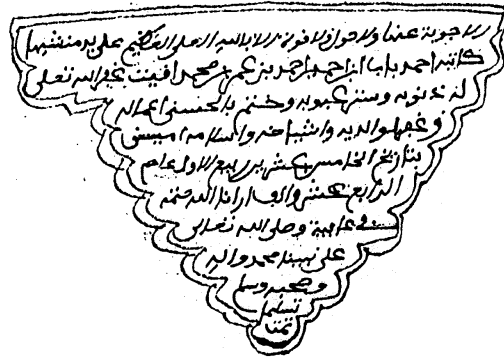 الاجوبة عنها ولا حول ولا قوة الا بالله العلي العظيم على يد منشيها
كاتبه احمد بابا ابن احمد بن احمد بن عمر بن محمد اقيت غفر الله تعلى
له ذنوبه وستر عيوبه وختم بالحسنى اعماله
وغفر لوالديه واشياخه والسلامة امين
بتاريخ الخامس عشر من ربيع الاول عام
الرابع عشر والف ارانا الله ختمه
في عافية وصلى الله تعالى
على نبينا محمد واله
وصحبه وسلم
تسليما
تمت